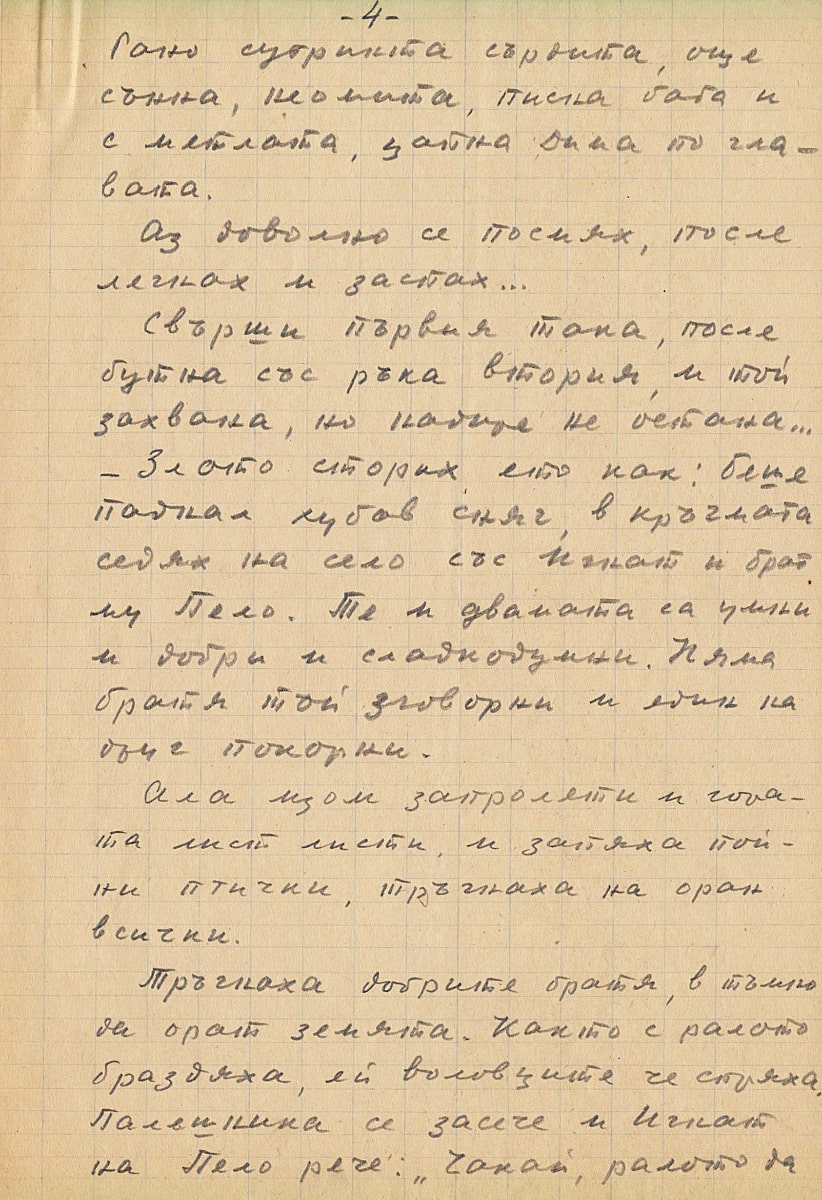 -4-
Рано сутринта сърдита, още
сънна, неомита, писна баба и
с метлата, цапна Дима по гла-
вата.
Аз доволно се посмях, после
легнах и заспах...
Свърши първия така, после
бутна със ръка втория, и той
захвана, но надире не остана...
- Злото сторих ето как: беше
паднал хубав сняг, в кръчмата
седях на село със Игнат и брат
му Пело. Те и двамата са умни
и добри и сладкодумни. Няма
братя тъй зговорни и един на
друг покорни.
Ала щом запролети и гора-
та лист листи, и запяха пой-
ни птички, тръгнаха на оран
всички.
Тръгнаха добрите братя, в тъмно
да орат земята. Както с ралото
браздяха, ей воловците че спряха.
Палешника се засече и Игнат
на Пело рече: „Чакай, ралото да